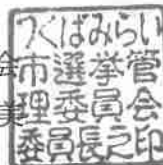 つくばみらい
市選挙管
理委員会
委員長之印